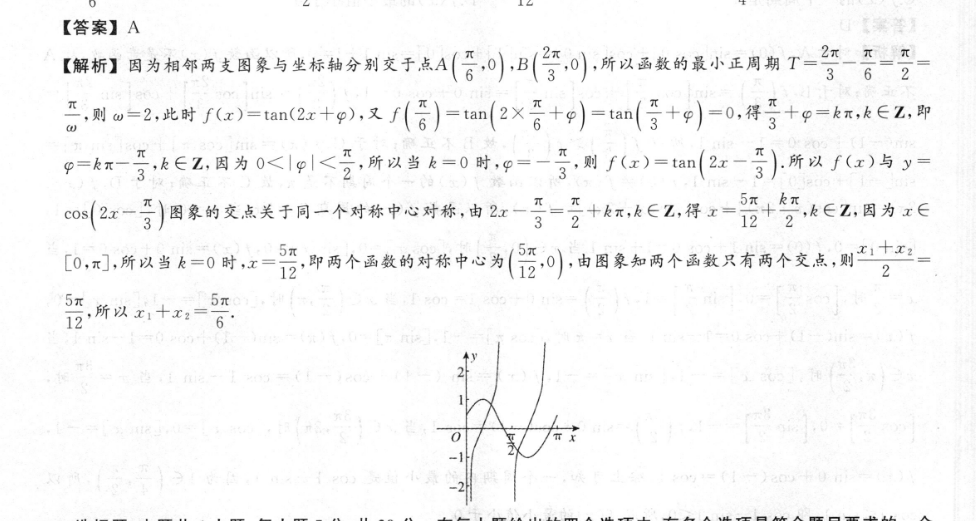 【答案】A
【解析】因为相邻两支图象与坐标轴分别交于点A(π/6,0),B(2π/3,0),所以函数的最小正周期 T=2π/3-π/6=π/2=
π/ω,则 ω=2,此时 f(x)=tan(2x+φ),又 f(π/6)=tan(2×π/6+φ)=tan(π/3+φ)=0,得π/3+φ=kπ,k∈Z,即
φ=kπ-π/3,k∈Z,因为 0<|φ|<π/2,所以当 k=0 时,φ=-π/3,则 f(x)=tan(2x-π/3).所以 f(x)与 y=
cos(2x-π/3)图象的交点关于同一个对称中心对称,由 2x-π/3=π/2+kπ,k∈Z,得 x=5π/12+kπ/2,k∈Z,因为 x∈
[0,π],所以当 k=0 时,x=5π/12,即两个函数的对称中心为(5π/12,0),由图象知两个函数只有两个交点,则(x₁+x₂)/2=
5π/12,所以 x₁+x₂=5π/6.
y
2
1
O π/2 π x
-1
-2